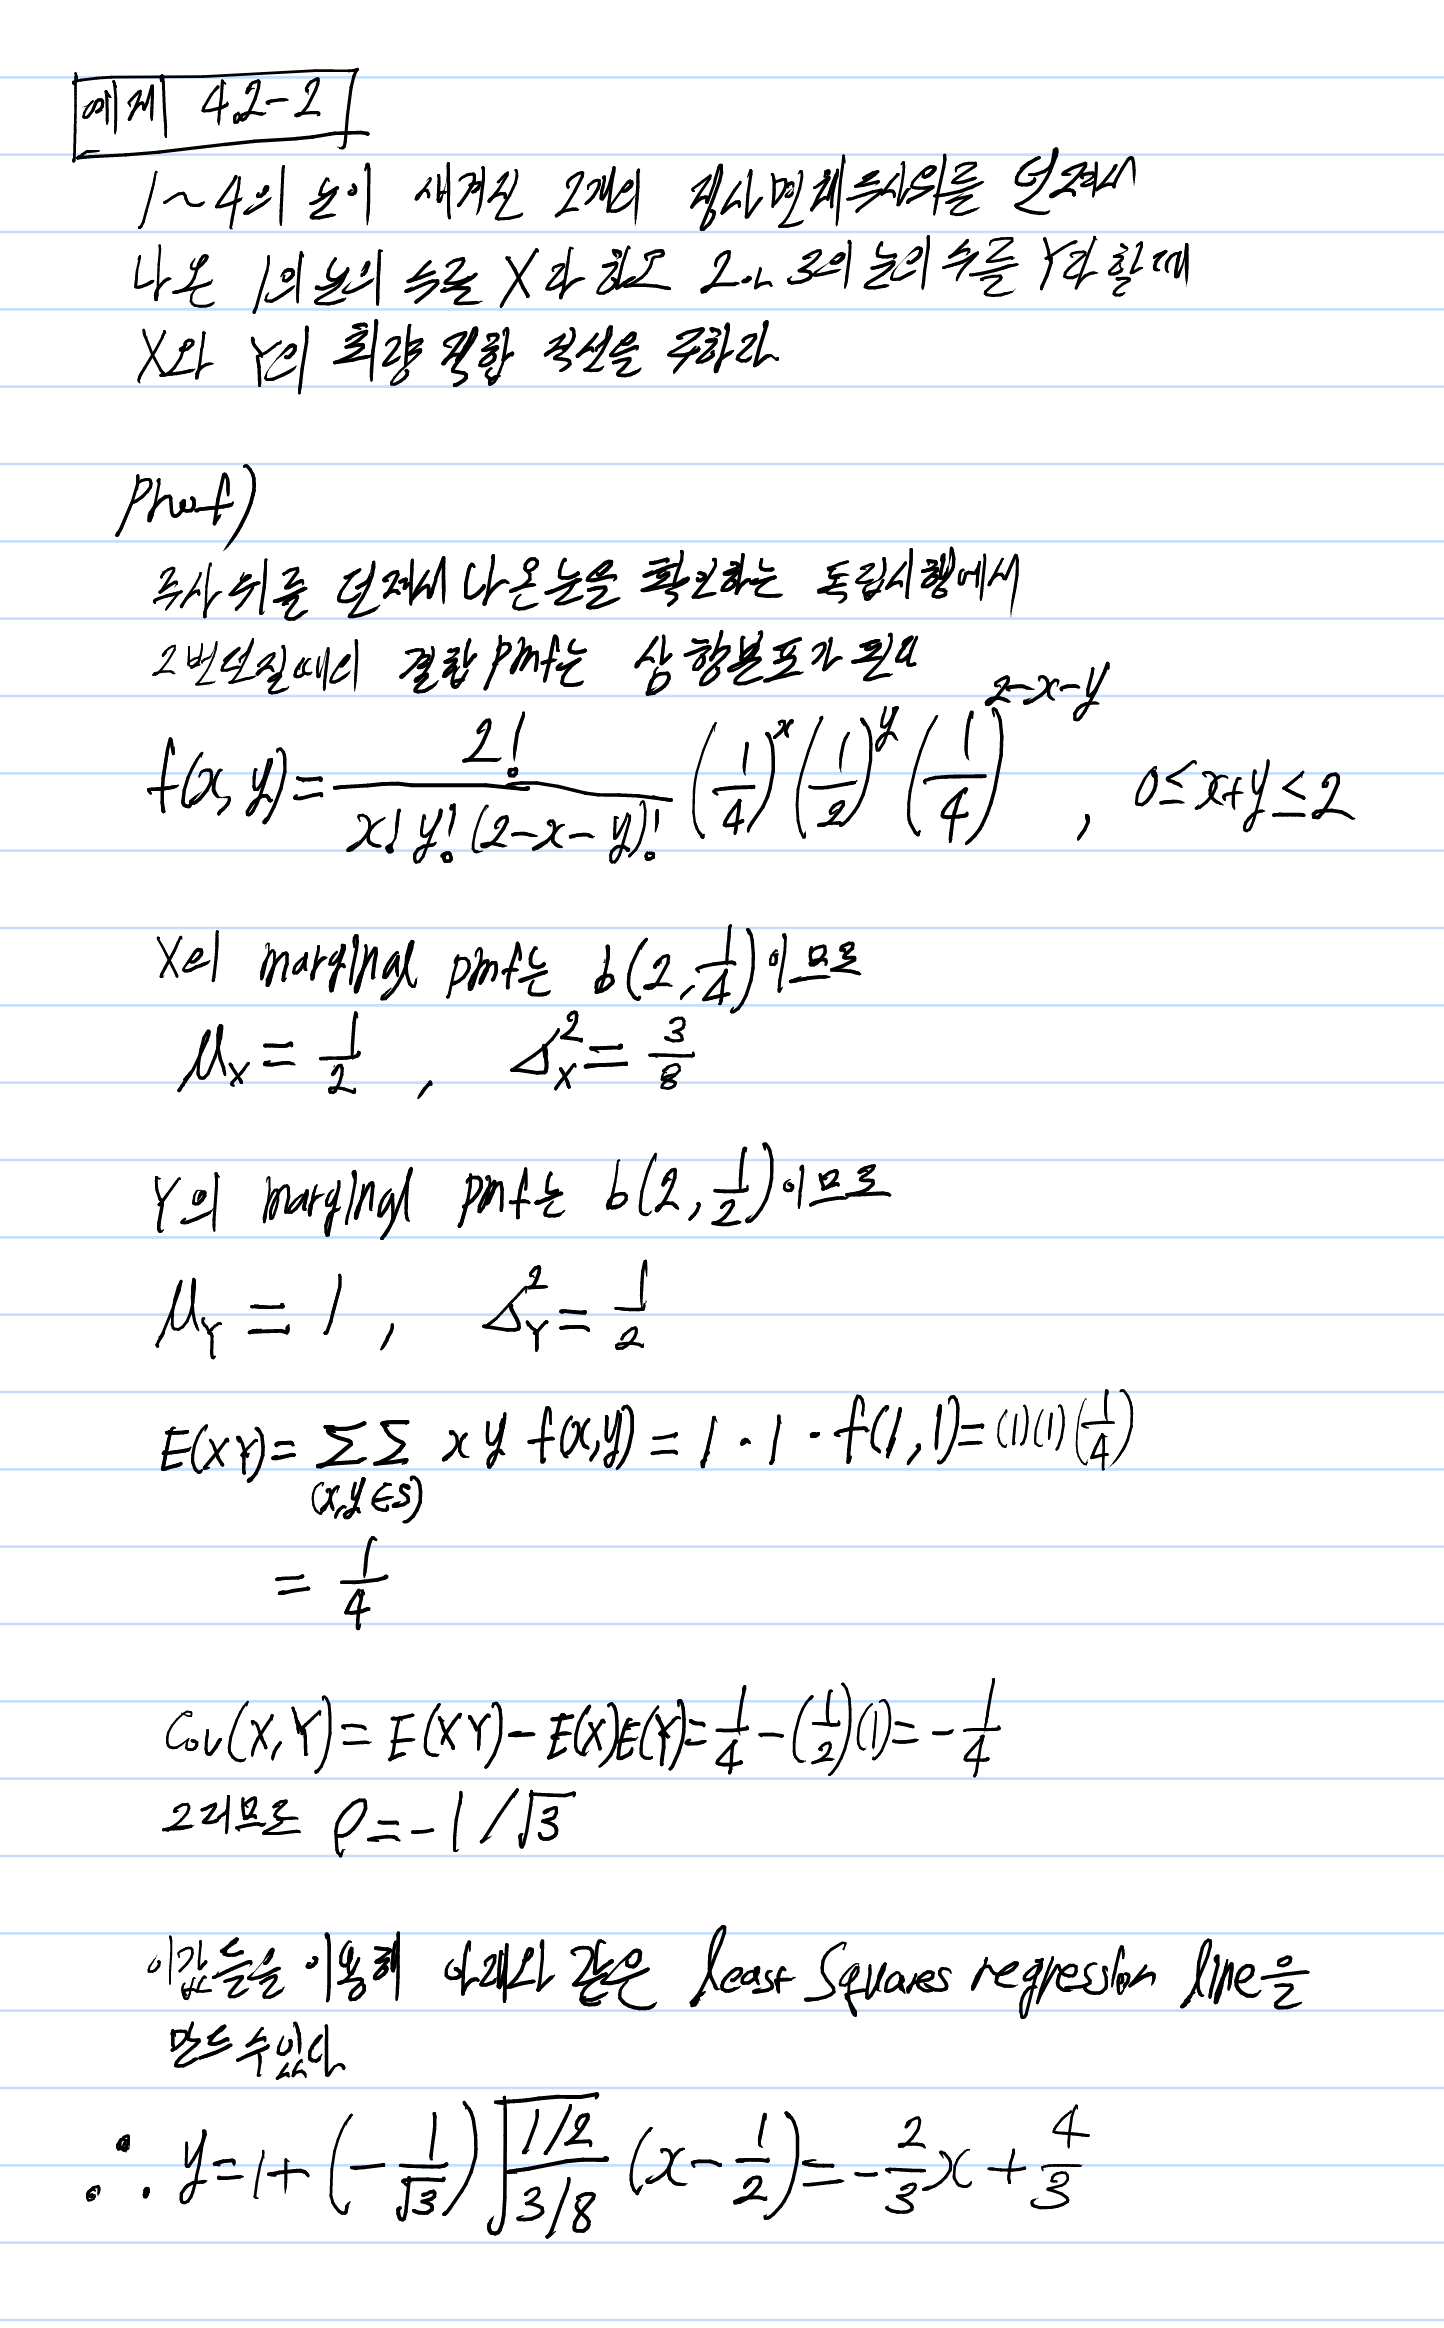 예제 4.2-2
1~4의 눈이 새겨진 2개의 정사면체주사위를 던져서
나온 1의 눈의 수를 X라 하고 2or 3의 눈의 수를 Y라 할때
X와 Y의 최량 적합 직선을 구하라
proof)
주사위를 던져서 나온눈을 확인하는 독립시행에서
2번던질때의 결합 pmf는 삼항분포가 되고
f(x, y) = 2! / x! y! (2-x-y)! (1/4)^x (1/2)^y (1/4)^{2-x-y} , 0≤x+y≤2
X의 marginal pmf는 b(2, 1/4)이므로
μ_X = 1/2 , σ_X^2 = 3/8
Y의 marginal pmf는 b(2, 1/2)이므로
μ_Y = 1 , σ_Y^2 = 1/2
E(XY) = ΣΣ_{(x,y ∈ S)} x y f(x,y) = 1 · 1 · f(1,1) = (1)(1)(1/4)
= 1/4
Cov(X,Y) = E(XY) - E(X)E(Y) = 1/4 - (1/2)(1) = -1/4
그러므로 ρ = -1/√3
이값들을 이용해 아래와 같은 least squares regression line을
만드수있다
∴ y = 1 + (-1/√3) √((1/2)/(3/8)) (x - 1/2) = -2/3 x + 4/3